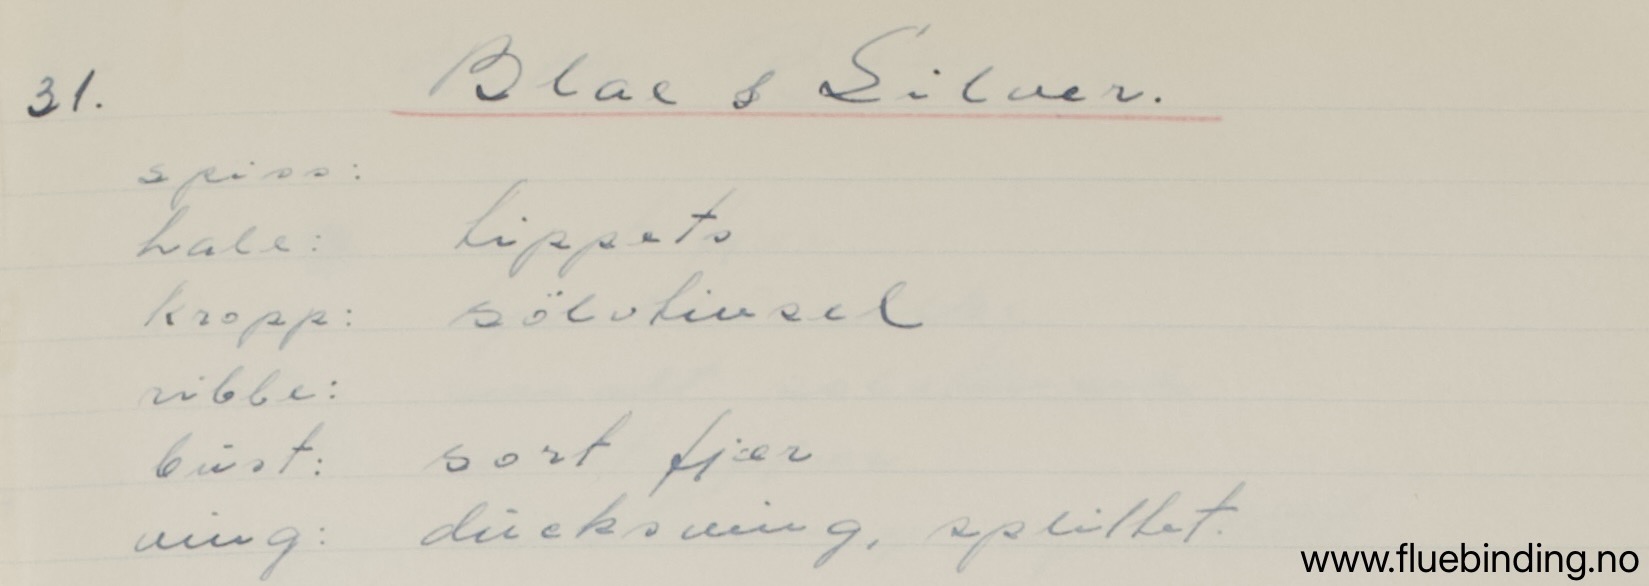 31. Blae & Silver.
spiss:
hale: tippets
kropp: sölvtinsel
ribbe:
büst: sort fjær
ving: ducksving, splittet.
www.fluebinding.no